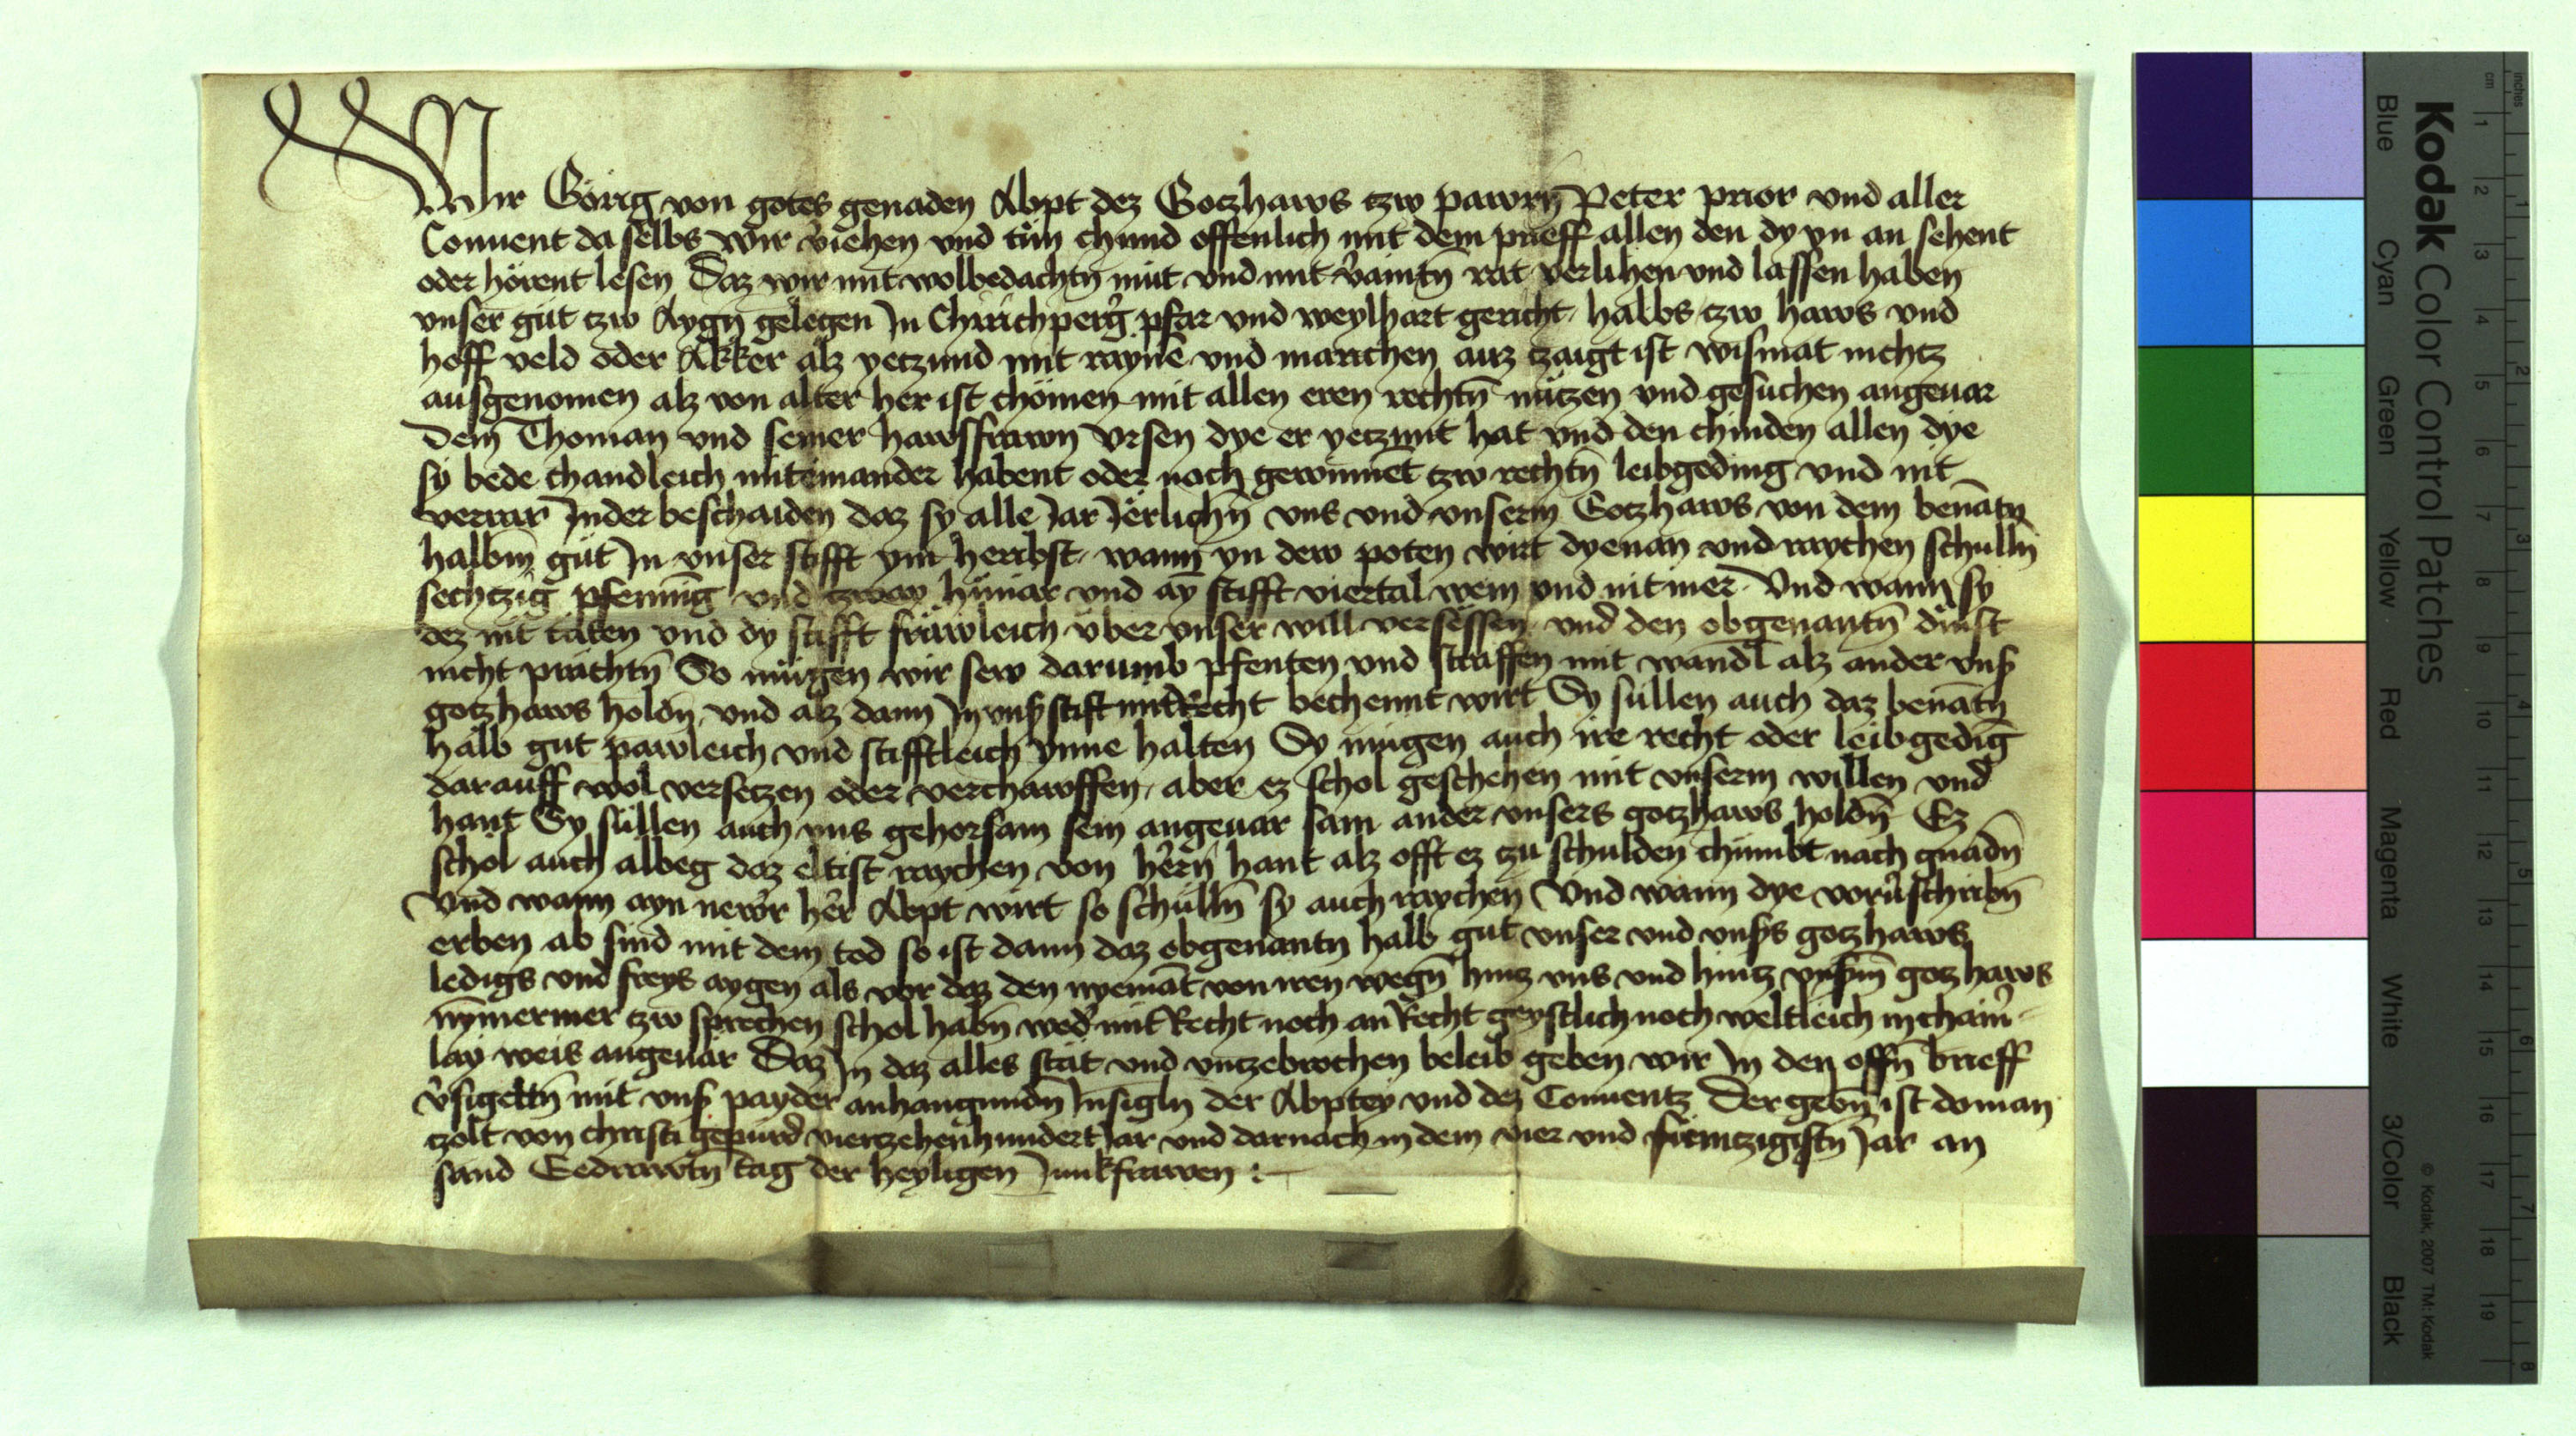 Wir Görig von gotes genaden Abpt dez Gotzhaws tzw pawrn̄ Peter prior vnd aller
Conuent da selbs wir v̉iehen vnd tün chund offenlich mit dem prieff allen den dy yn an sehent
oder hörent lesen Daz wir mit wolbedachtn̄ müt vnd mit v̉aintn̄ rat verlihen vnd lassen haben
vnser güt tzw Aygn̄ gelegen Jn Chirichperg̉ pfar vnd weylhart gericht halbs tzw haws vnd
hoff veld oder Akker alz yetzund mit raynē vnd marichen auz tzaigt ist wismat nichtz
ausgenomen alz von alter her ist chömen mit allen eren rechtn̄ nützen vnd gesuchen angeuar
Dem Thoman vnd seiner hawsfrawn Vrsen dye er yetzunt hat vnd den chinden allen dye
sy bede chandleich miteinander habent oder noch gewinnēt tzw rechtn̄ leibgeding vnd nit
verrar Jnder beschaiden daz sy alle Jar Jërlichn̄ vns vnd vnserm Gotzhaws von dem benātn
halbm̄ güt Jn vnser stifft ym heribst wann yn dew poten wirt dyenan vnd raychen schulln̄
sechtzig pfennīg vnd tzway hünar vnd ay̅ stifft viertal wein vnd nit mer Vnd wann sy
dez nit täten vnd dy stifft fräwleich über vnser will versëssen vnd den obgenantn̄ dinst
nicht prächtn̄ So mügen wir sew darumb pfenten vnd straffen mit wandl alz ander vnß
gotzhaws holdn̄ vnd alz dann Jn vnß stift mit Recht bechennt wirt Sy süllen auch daz benātn̄
halb gut pawleich vnd stifftleich ynne halten Sy mügen auch ire recht oder leibgedīg
darauff wol versetzen oder verchawffen aber ez schol geschehen mit vnserm willen vnd
hant Sy süllen auch vns gehorsam sein angeuar sam ander vnsers gotzhaws holdn̄ Ez
schol auch albeg daz eltist raychen von hern̄ hant alz offt ez zu schulden chümbt nach gnadn̄
Vnd wann ayn newr̉ her̉ Abpt wirt so schülln̄ sy auch raychen Vnd wann dye vorv̉schribn̄
erben ab sind mit dem tod so ist dann daz obgenantn halb gut vnser vnd vnßs gotzhaws
ledigs vnd freys aygen als vor daz den nyemāt von iren wegn̄ hintz vns vnd hintz vnßm̄ gotzhaws
nȳmermer tzw sprechen schol habn̄ wed̉ mit Recht noch an Recht geystlich noch weltleich in chain̉
lay weis angeuär Daz Jn daz alles stät vnd vntzebrochen beleib geben wir Jn den offn̄ brieff
v̉sigeltn̄ mit vnß payder anhangundn̄ Jnsigln der Abptey vnd dez Conuentz Der gebn̄ ist do man
tzolt von christi gepürd viertzehenhundert Jar vnd darnach in dem vier vnd
sand Gedrawtn̄ tag der heyligen Junkfrawen :
Kodak Color Control Patches
Blue Cyan Green Yellow Red Magenta White 3/Color Black
© Kodak, 2007 TM: Kodak
inches 1 2 3 4 5 6 7 8
cm 1 2 3 4 5 6 7 8 9 10 11 12 13 14 15 16 17 18 19